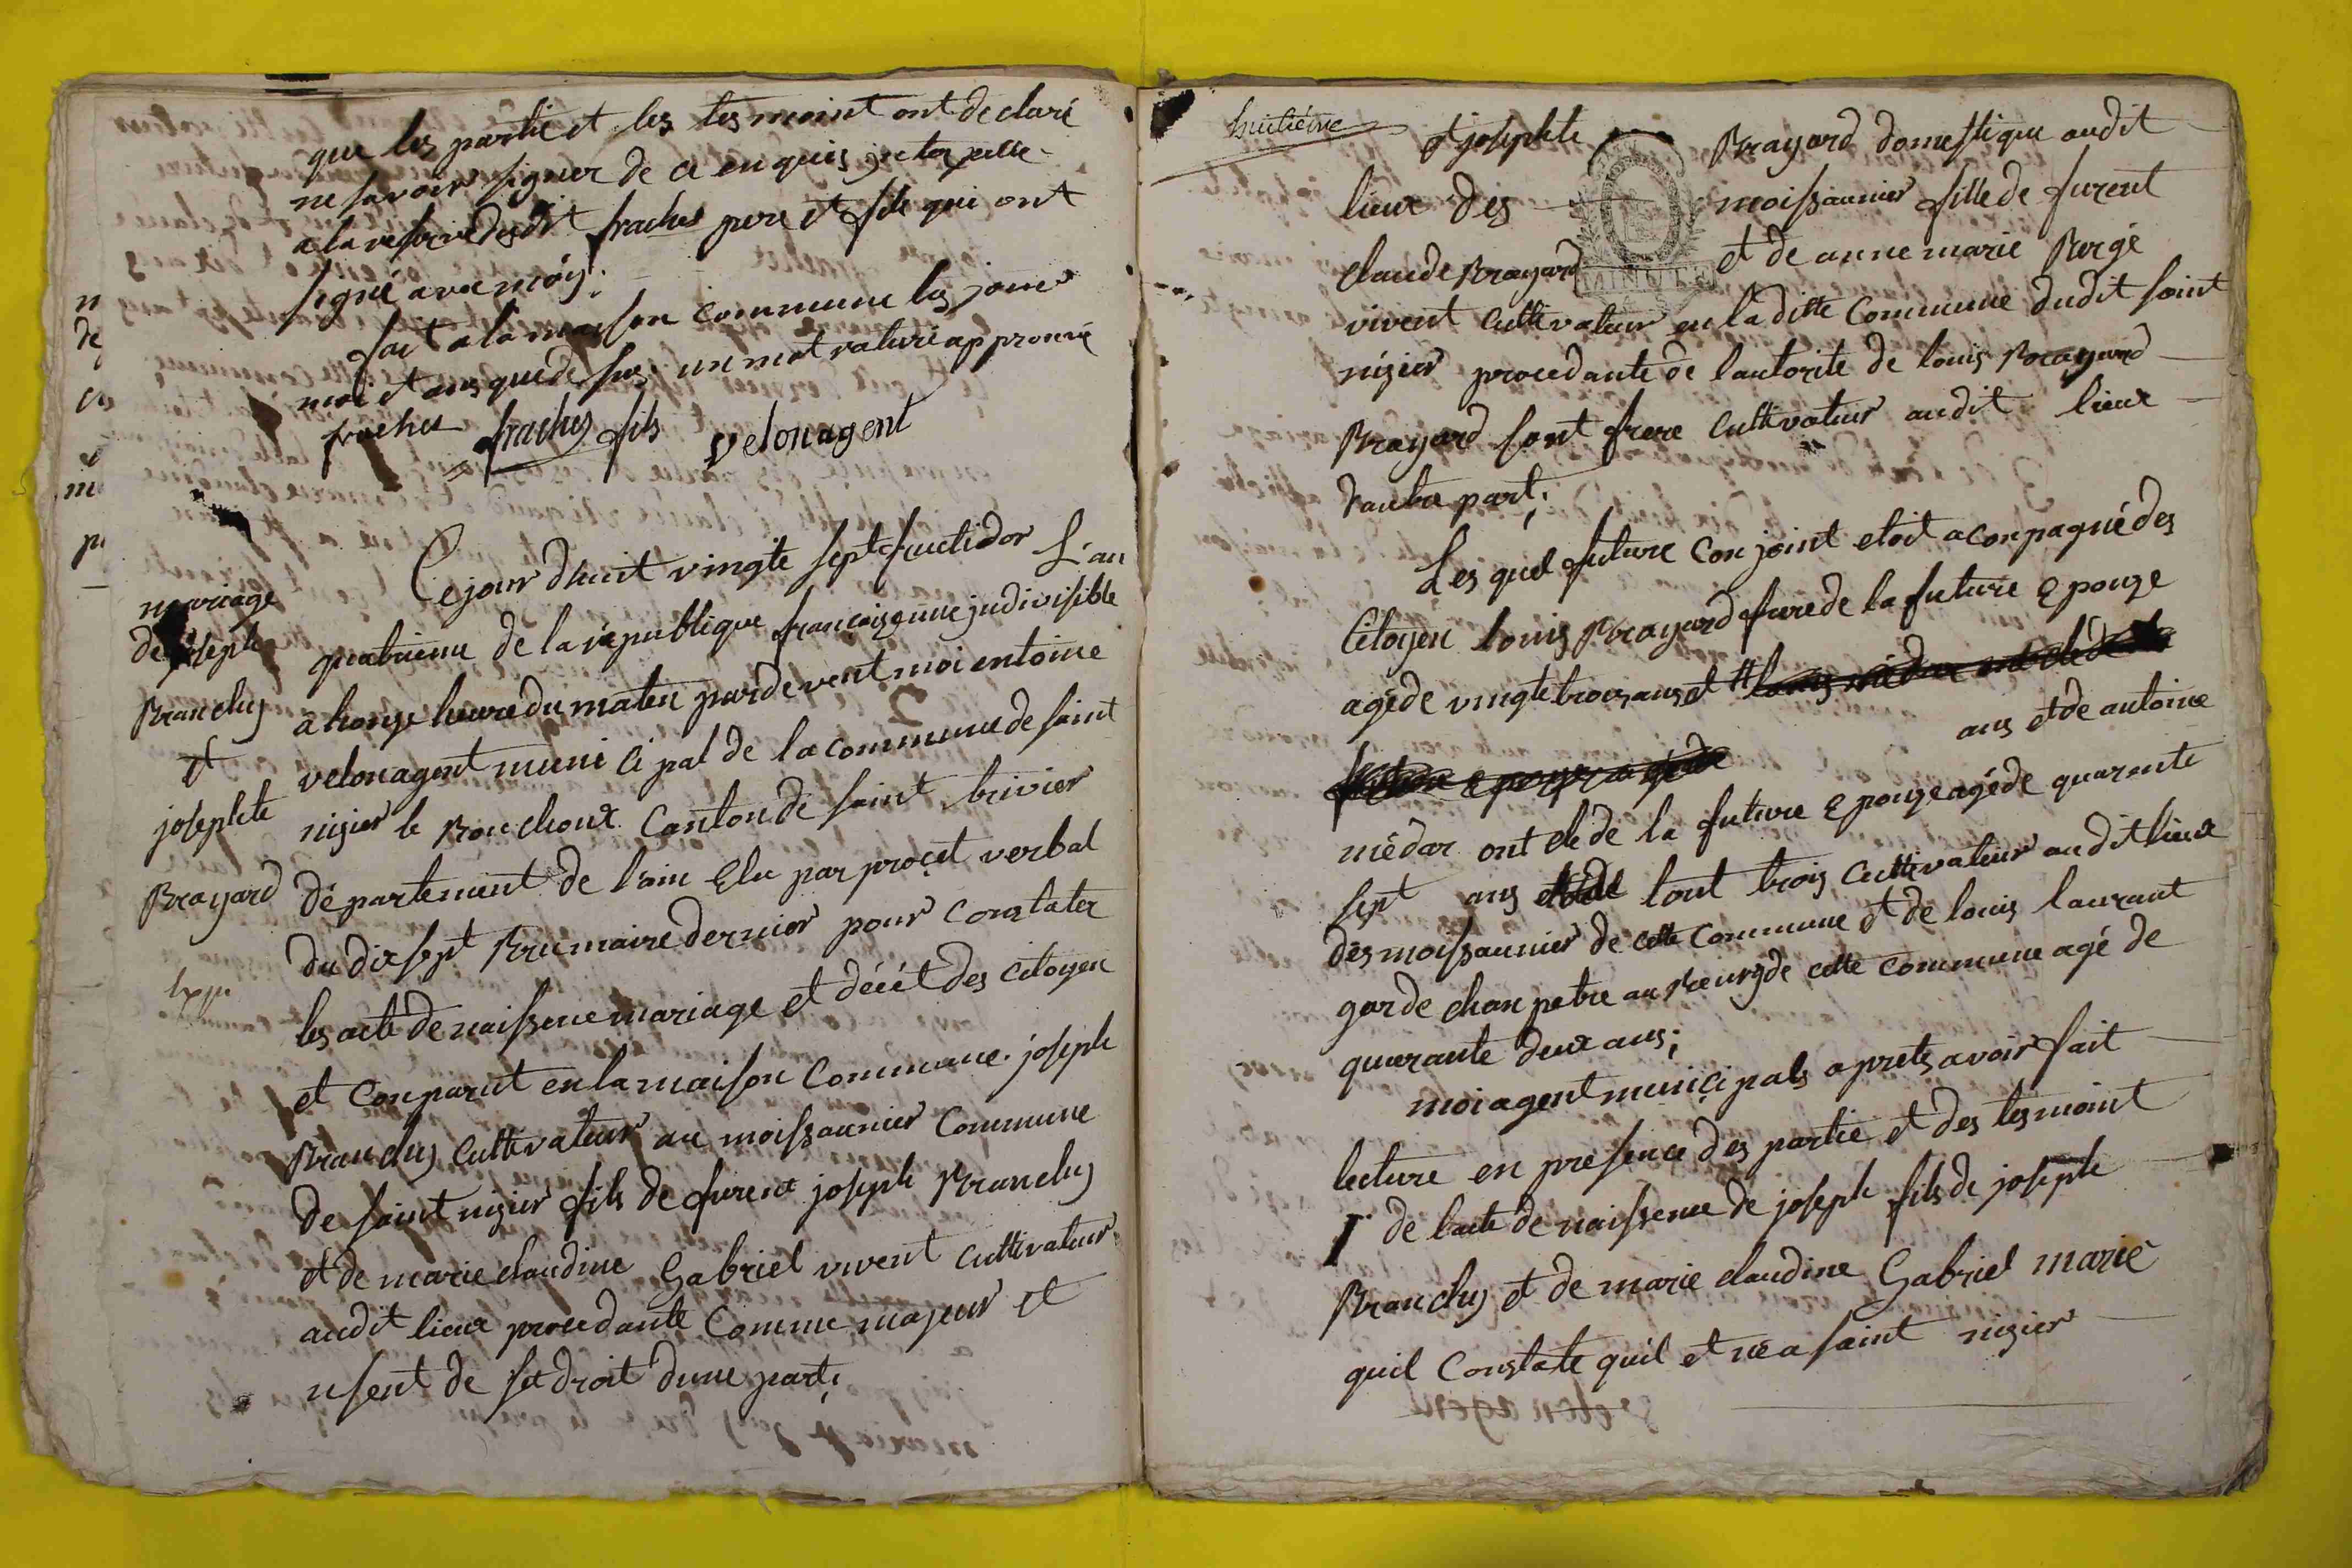 que les partie et les tesmoint ont declaré
ne savoir signer de ce enquis
a la reserve desdit fraches pere et fils qui ont
signé avec moy;
fait a la maison commune les jour
moi et ans que desus. un mot raturé approuvé
fraches fraches fils velon agent
mariage
de joseph
Branchy
et
josephte
Brayard
Ce jour dhuit vingte sept fructidor L'an
quatrieme de la republique française une jndivisible
a honze heure du maten pardevent moi entoine
velon agent muni ci pal de la commune de saint
nizier le Bouchoux Canton de saint trivier
département de lain Elu par procet verbal
du dix sept Brumaire dernier pour constater
les acte de naissence mariage et décét des citoyen
et conparut en la maison Commune. joseph
Branchy Cultivateur au moissaunier Commune
de saint nizier fils de furent joseph Branchy
et de marie claudine Gabriel vivent cultivateur
audit lieux procedante Comme majeur et
usent de set droit dune part;
huitiéme
et josephte Brayard domestique audit
lieux des moissaunier fille de furent
claude Brayard et de anne marie Borgé
MINUTE
vivent cultivateur en laditte Commune dudit saint
nizier procedante de lautorite de louis Brayard
Brayard sont frere cultivateur audit lieux
dautre part;
Les quel future conjoint etoit aconpagné des
Citoyen louis Brayard frere de la future Epouze
agé de vingte trois ans et louis médar ont cle de la
future epouze agé de ans et de antoine
médar ont cle de la future Epouze agé de quarente
sept ans tout trois cultivateur audit lieux
des moissaunier de cette commune et de louis laurant
garde chanpetre au Bourg de cette commune agé de
quarante deux ans;
moi agent municipals aprets avoir fait
lecture en presence des partie et des tesmoint
I° de lacte de naissence de joseph fils de joseph
Branchy et de marie claudine Gabriel marié
quil Constate quil et né a saint nizier